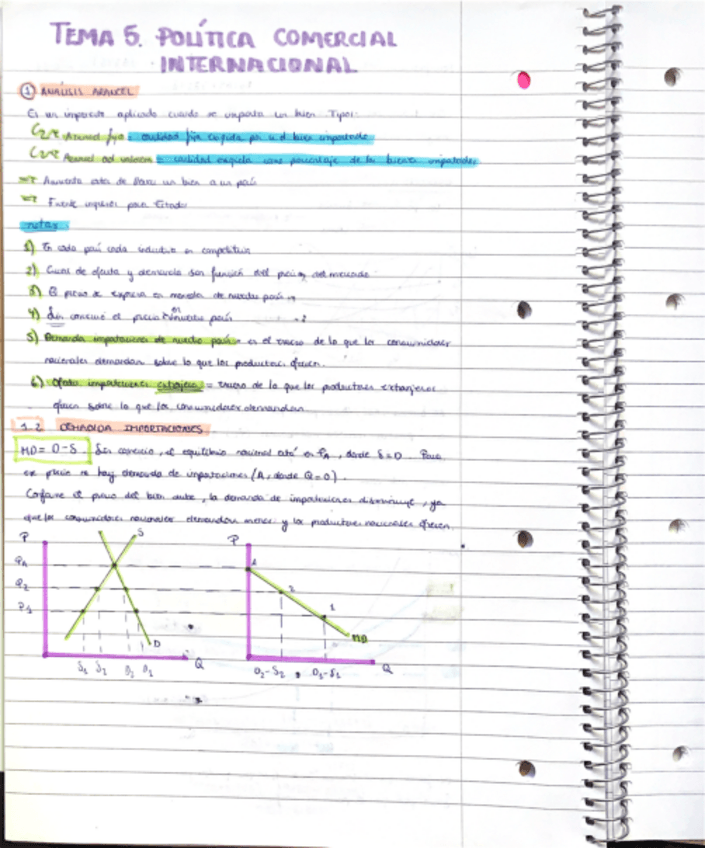 TEMA 5. POLÍTICA COMERCIAL
INTERNACIONAL
① ANÁLISIS ARANCEL
Es un impuesto aplicado cuando se importa un bien. Tipos:
Arancel fijo = cantidad fija exigida por u.d bien importado
Arancel ad valorem = cantidad exigida como porcentaje de los bienes importados
Aumenta coste de llevar un bien a un país
Fuente ingresos para Estado
notas
1) En cada país cada industria en competitiva
2) Curvas de oferta y demanda son función del precio del mercado
3) El precio se expresa en moneda de nuestro país
4) Sin comercio el precio en nuestro país
5) Demanda importaciones de nuestro país = es el exceso de lo que los consumidores
nacionales demandan sobre lo que los productores ofrecen.
6) Oferta importaciones extranjera = exceso de lo que los productores extranjeros
ofrecen sobre lo que los consumidores demandan
1.2 DEMANDA IMPORTACIONES
MD = D - S Sin comercio, el equilibrio nacional está en PA, donde S = D. Para
ese precio no hay demanda de importaciones (A, donde Q=0).
Conforme el precio del bien sube, la demanda de importaciones disminuye, ya
que los consumidores nacionales demandan menos y los productores nacionales ofrecen.
P S P
PA A
P2 2
P1 1
MD
D
Q Q
S1 S2 D2 D1 D2-S2 D1-S1